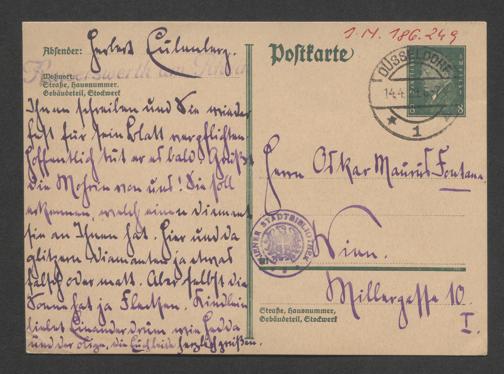 Absender: Herbert Eulenberg.
Kaiserswerth am Rhein
Wohnort:
Straße, Hausnummer,
Gebäudeteil, Stockwerk
Ihnen schreiben und Sie wieder
fest für sein Blatt verpflichten.
Hoffentlich tut er es bald. Grüßt
die Mohrin von uns! Sie soll
erkennen, welch einen Diamant
sie an Ihnen hat. Hier und da
glitzern Diamanten ja etwas
falsch oder matt. Aber selbst die
Sonne hat ja Flecken. Kindlein
liebet Einander drum wie Hedda
und der die herzlich grüßen.
Postkarte
1.N. 186.249
DÜSSELDORF
14.4.
1
8 8
Herrn Oskar Maurus Fontana
WIENER STADTBIBLIOTHEK
Wien.
Millergasse 10.
I.
Straße, Hausnummer,
Gebäudeteil, Stockwerk